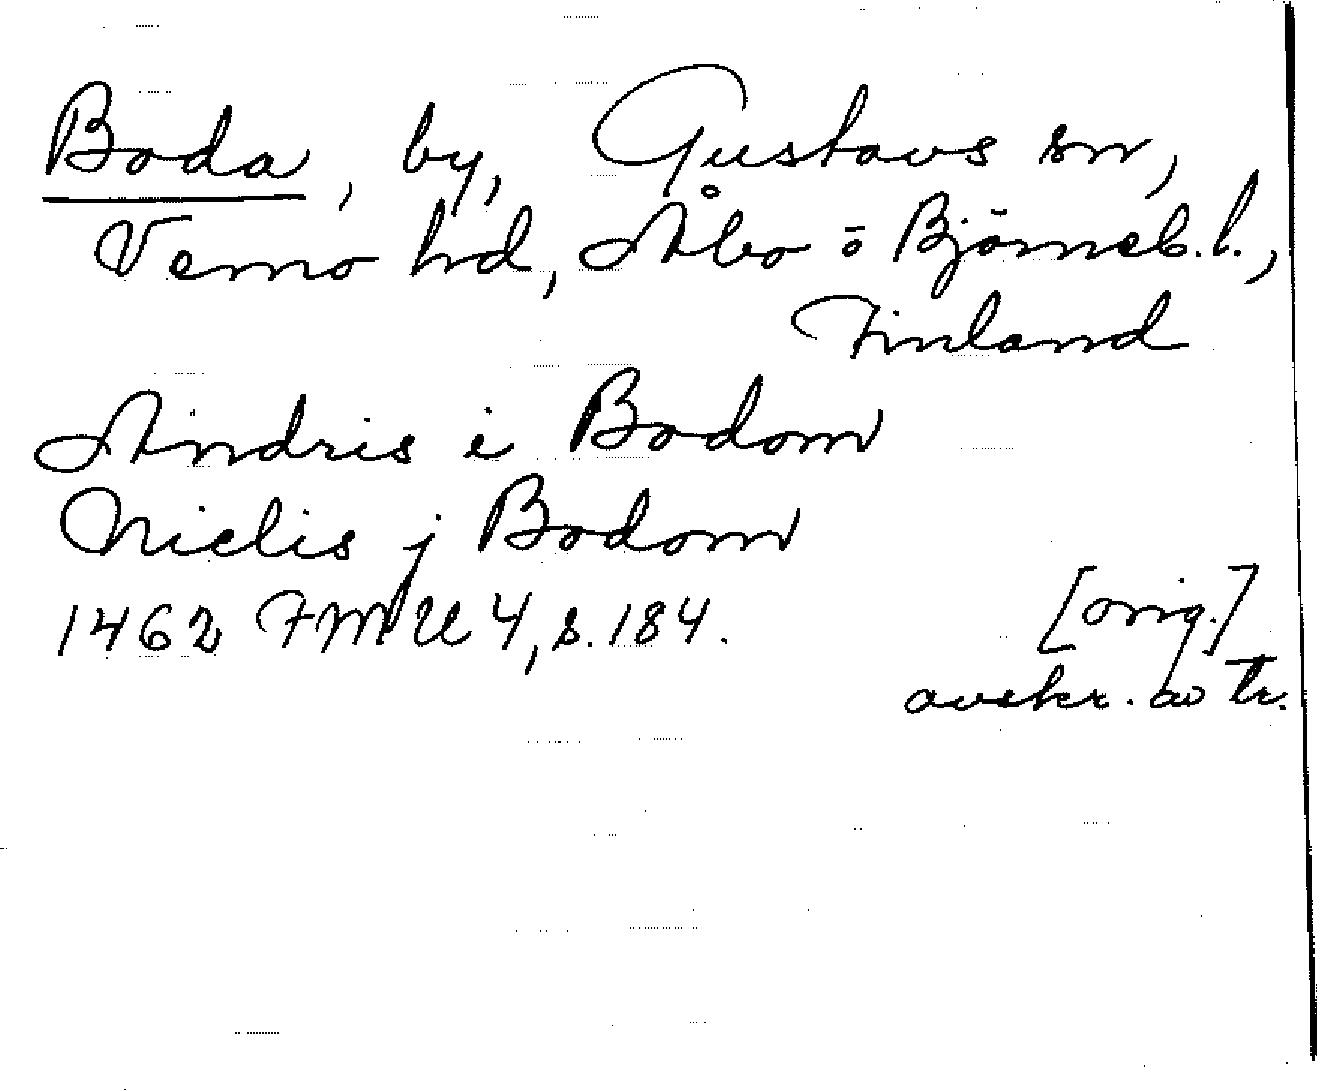 Boda, by, Gustavs sn,
Vemo hd, Åbo o Björneb. l.,
Finland
Andris i Bodom
Nielis j Bodom
1462 FMU 4, s. 184.
[orig.]
avskr. av tr.